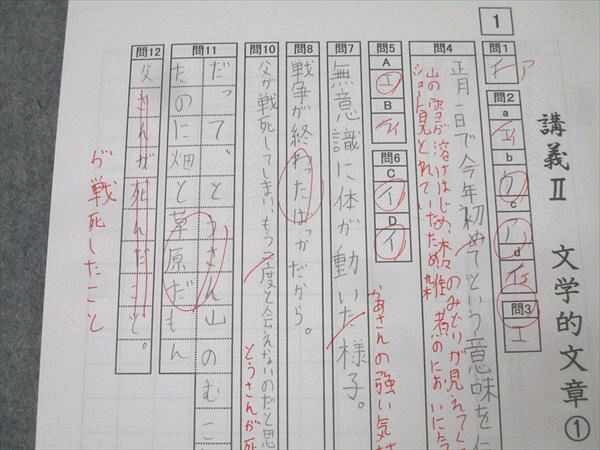 1
講義Ⅱ 文学的文章①
問1
ア
問2
a
エ
b
ウ
c
ア
d
イ
問3
エ
問4
正月一日で今年初めてという意味を
山の雪が溶けはじめ、木々のみどりが見えてく
問5
A
エ
B
問6
C
イ
D
イ
かあさんの強い気
問7
無意識に体が動いた様子。
問8
戦争が終わったばっかだから。
問10
父が戦死してしまい、もう二度と会えないのだと思
とうさんが死
問11
だって、とうさん山のむこ
たのに畑と草原だもん
問12
父さんが死んだこと。
が戦死したこと